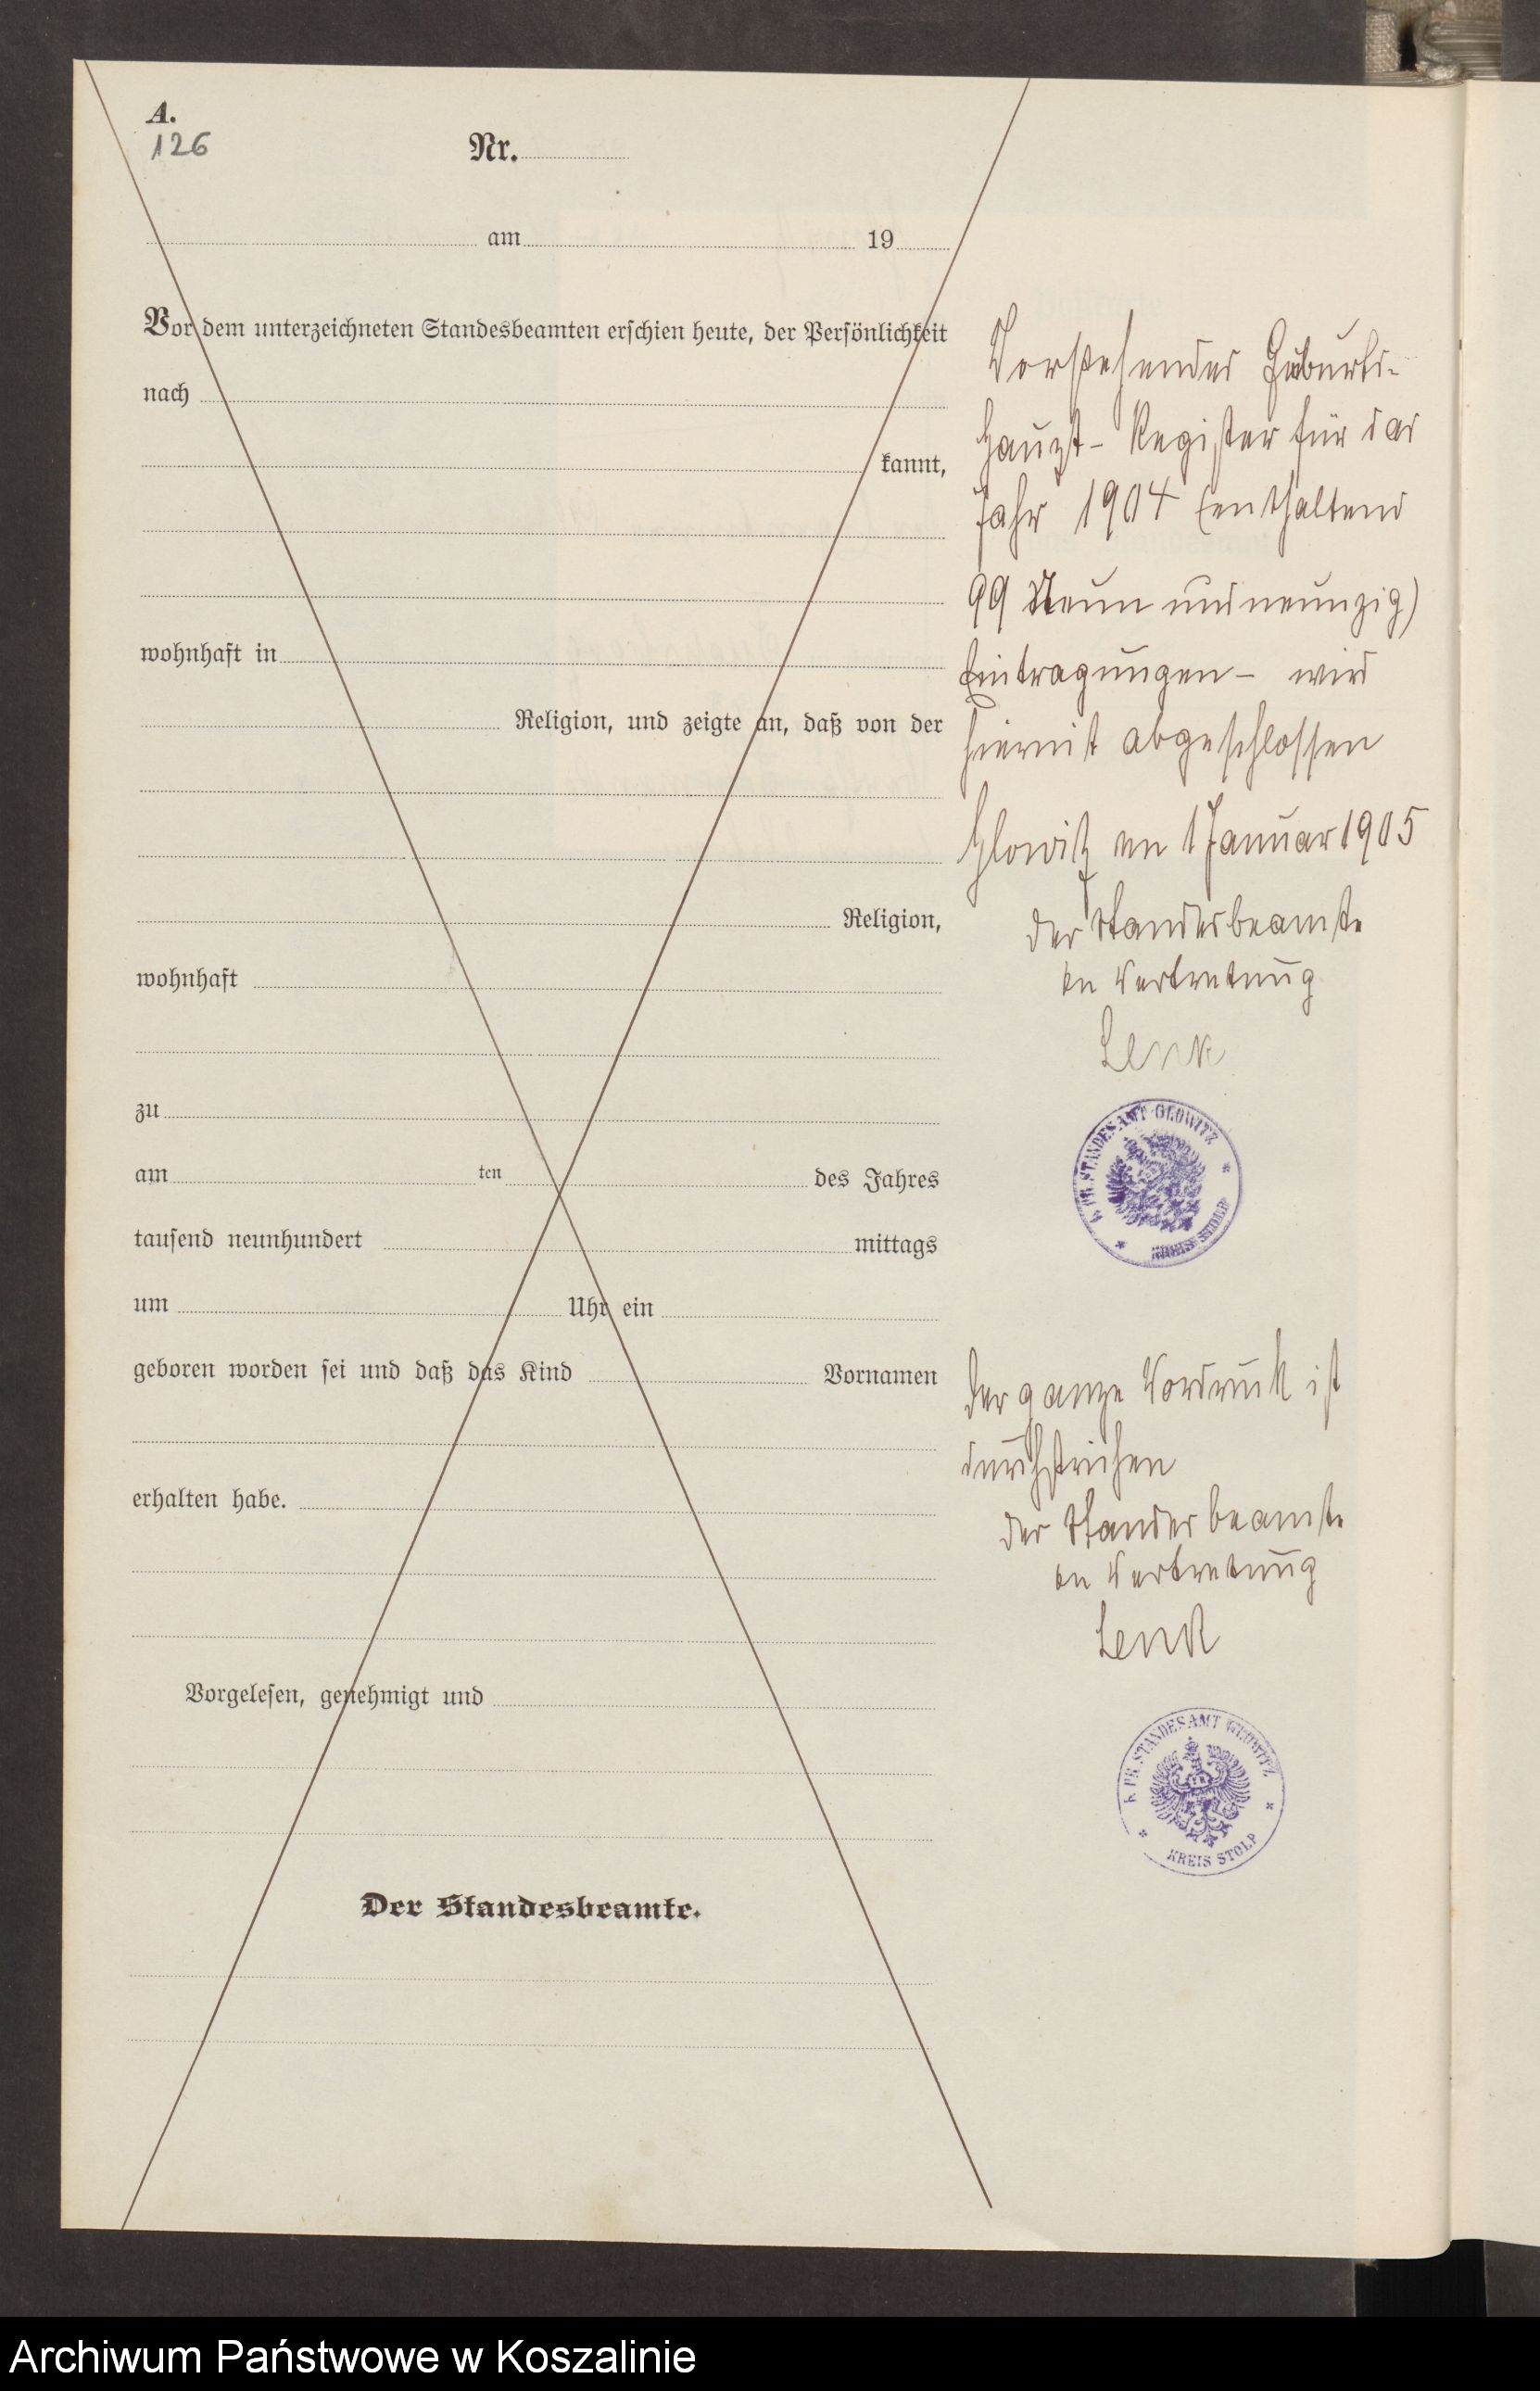 A.
126
Nr.
am 19
Vor dem unterzeichneten Standesbeamten erschien heute, der Persönlichkeit
nach
kannt,
wohnhaft in
Religion, und zeigte an, daß von der
Religion,
wohnhaft
zu
am ten des Jahres
tausend neunhundert mittags
um Uhr ein
geboren worden sei und daß das Kind Vornamen
erhalten habe.
Vorgelesen, genehmigt und
Der Standesbeamte.
Vorstehendes Geburts-
Haupt-Register für das
Jahr 1904 (enthaltend
99 Neun und neunzig)
Eintragungen – wird
hiermit abgeschlossen
Glowitz am 1 Januar 1905
der Standesbeamte
In Vertretung
Lenk
K. PR. STANDESAMT GLOWITZ
KREIS STOLP
Der ganze Vordruck ist
durchstrichen
der Standesbeamte
in Vertretung
Lenk
K. PR. STANDESAMT GLOWITZ
KREIS STOLP
Archiwum Państwowe w Koszalinie